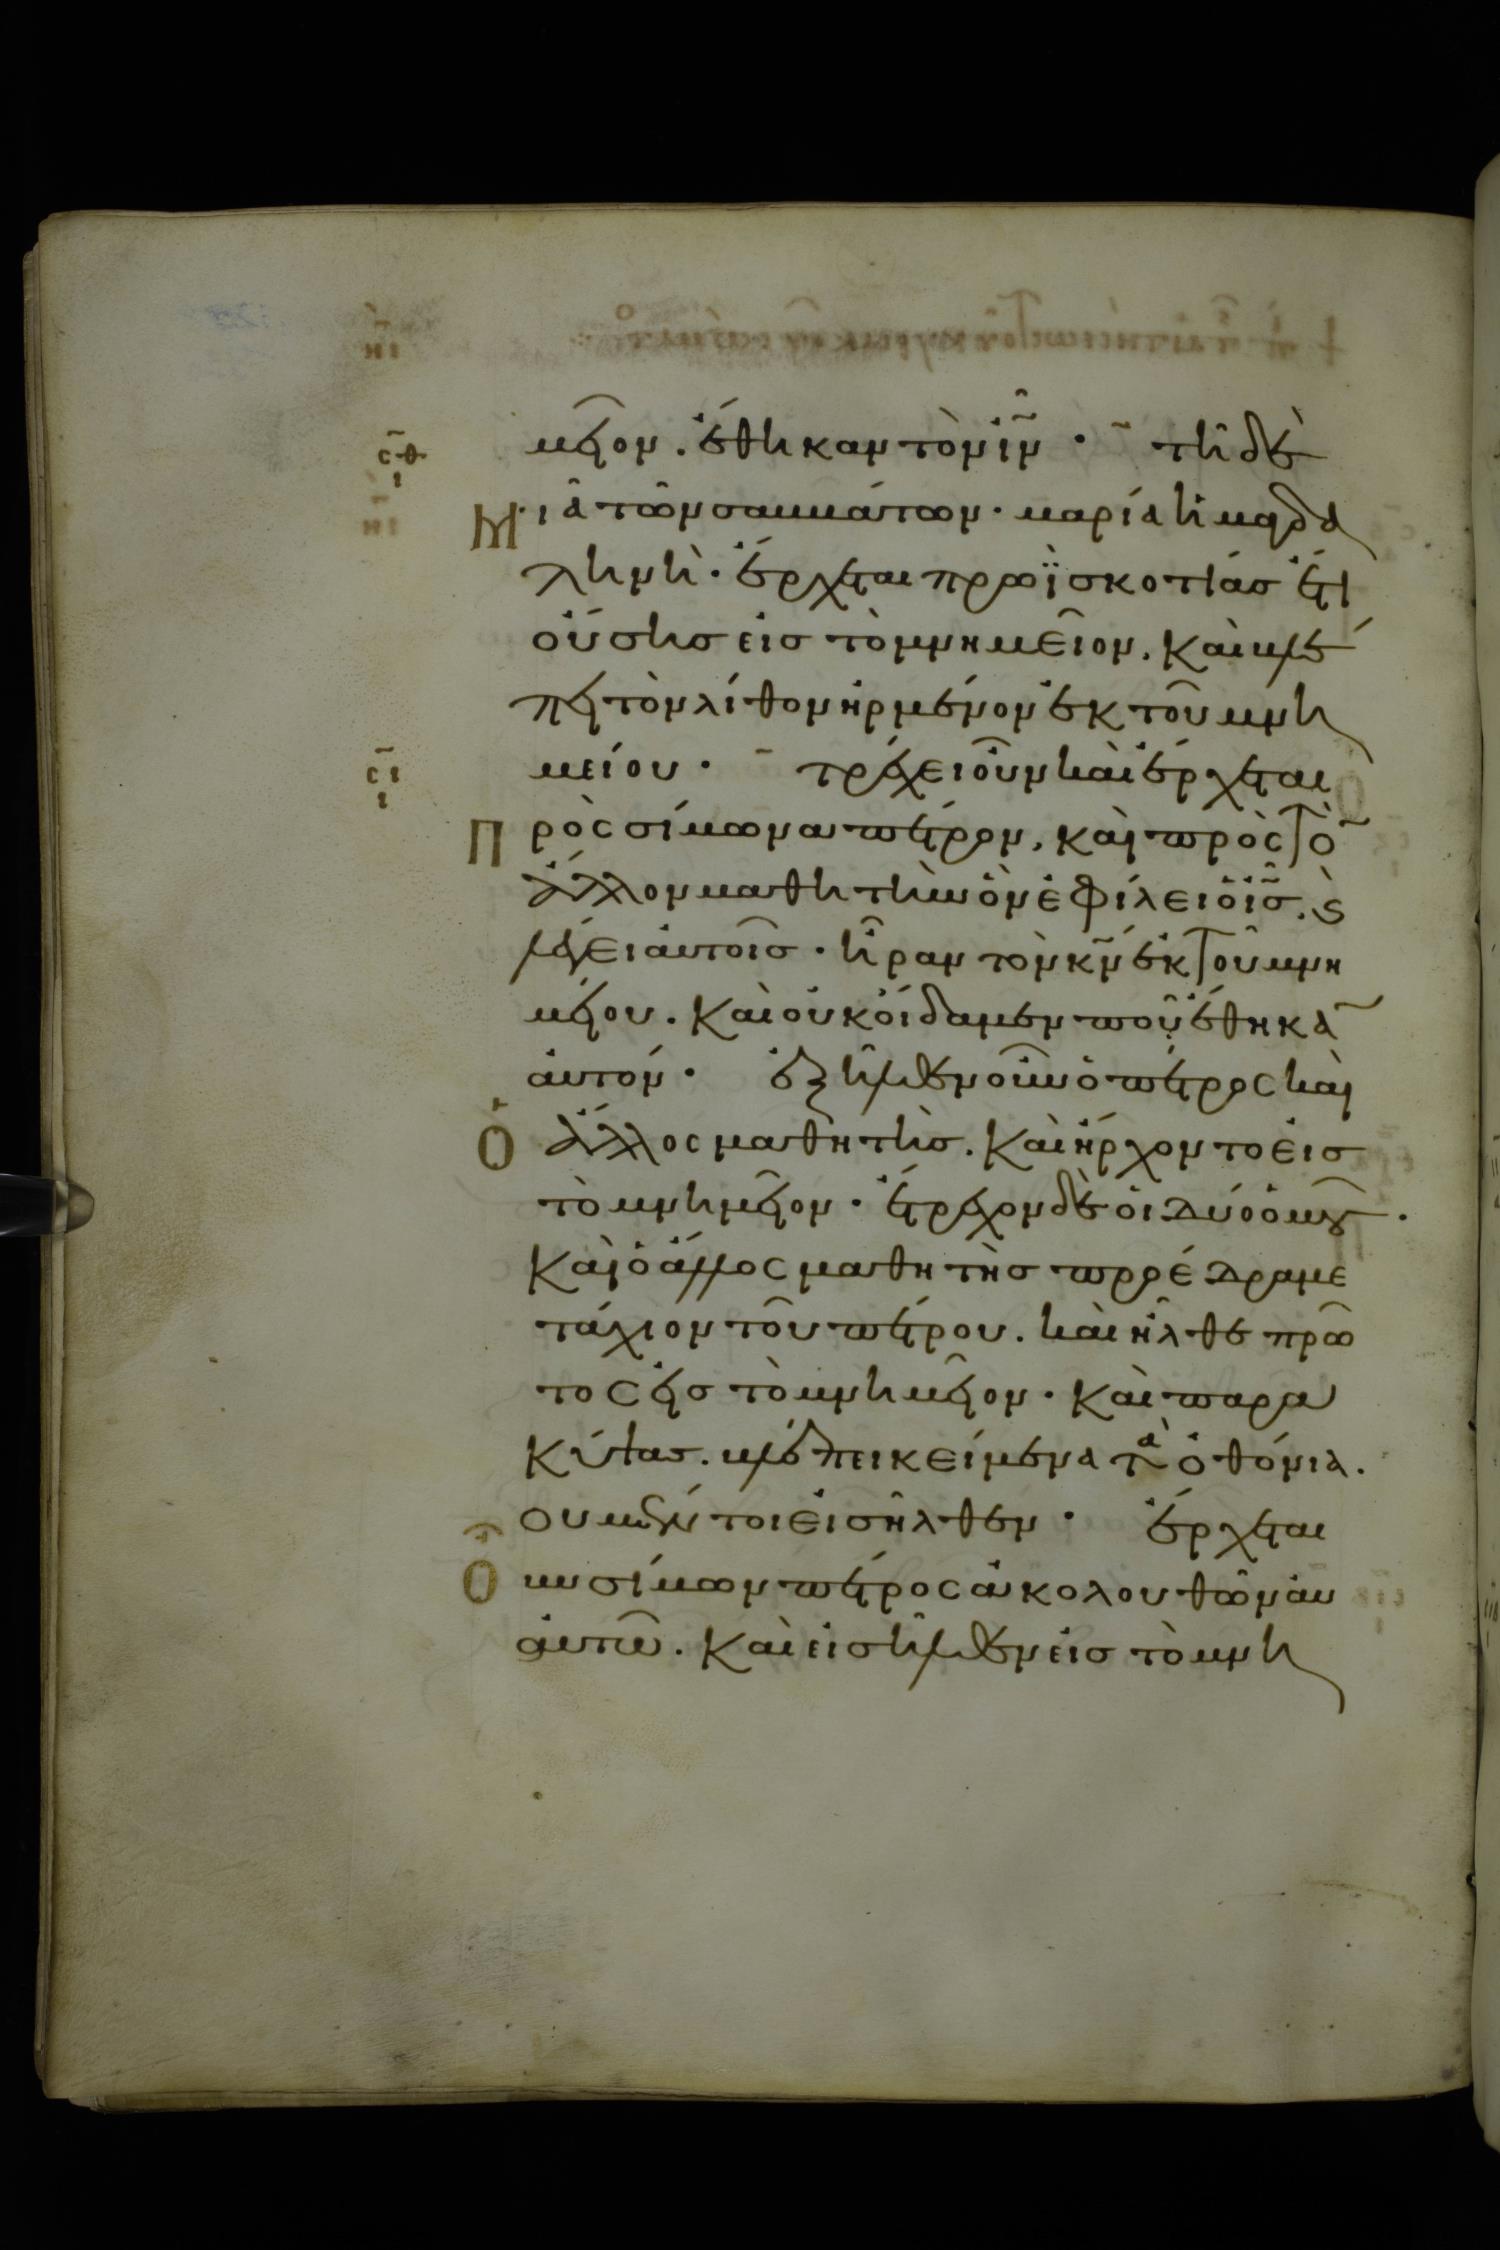 μεῖον. ἔθηκαν τὸν ἰ̅ν̅ · τῆ δὲ
σ̅θ̅ ι
Μιᾶ τῶν σαββάτων· μαρία ἡ μαγδα
ληνὴ· ἔρχεται πρωῒ σκοτίασ ἔτι
οὔσησ εἰσ τὸ μνημεῖον. καὶ βλέ
πει τὸν λίθον ἠρμένον ἐκ τοῦ μνη
σ̅ι̅ ι
μείου · τρέχει οὖν καὶ ἔρχεται
Πρὸς σίμωνα πέτρον, καὶ πρὸς τὸ̅
ἄλλον μαθητὴν ὃν ἐφίλει ὁ ι̅σ̅. ϗ
λέγει αὐτοῖσ · ἦραν τὸν κ̅ν̅ ἐκ τοῦ μνη
μείου. καὶ οὐκ οἴδαμεν ποῦ ἔθηκα̅
αὐτόν · ἐξῆλθεν οὖν ὁ πέτρος καὶ
Ὁ ἄλλος μαθητὴσ. καὶ ἤρχοντο εἰσ
τὸ μνημεῖον · ἔτρεχον δὲ οἱ δύο ὁμοῦ.
καὶ ὁ ἄλλος μαθητὴσ προέδραμε
τάχιον τοῦ πέτρου. καὶ ἦλθε πρῶ
τος εἰσ τὸ μνημεῖον · καὶ παρα
κύψασ. βλέπει κείμενα τὰ ὀθόνια.
ου μέντοι εἰσῆλθεν · ἔρχεται
Οὖν σίμων πέτρος ἀκολουθῶν αυ
αὐτῶ. καὶ εἰσῆλθεν εἰσ τὸ μνη